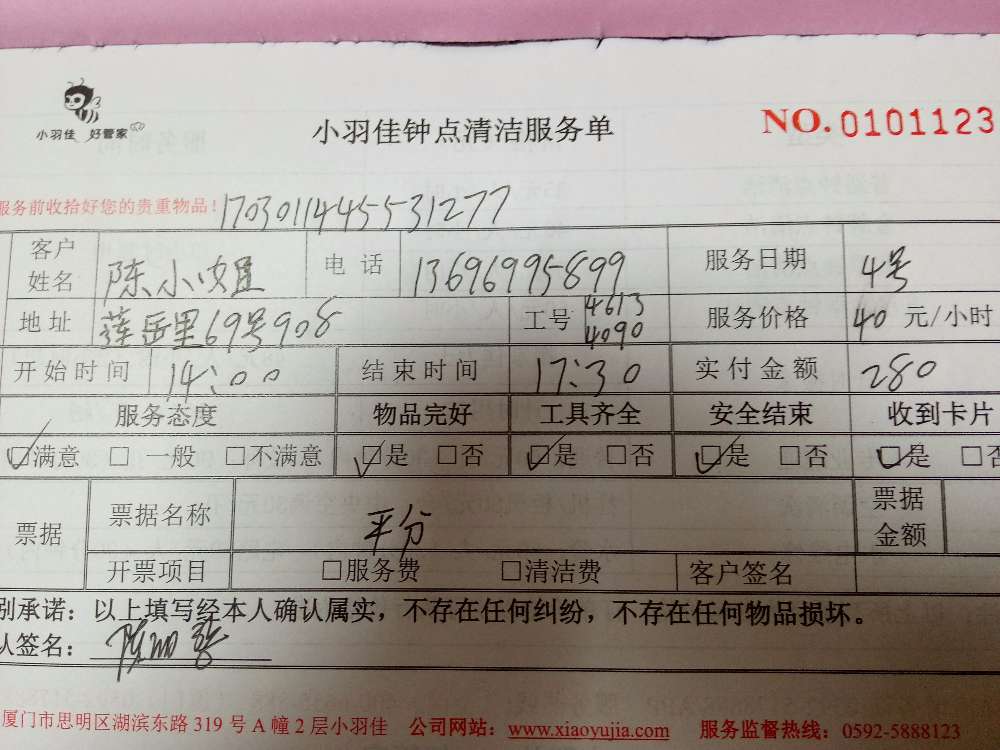 小羽佳 好管家
小羽佳钟点清洁服务单
NO. 0101123
服务前收拾好您的贵重物品! 1703011445531277
客户姓名 陈小姐 电话 13696995899 服务日期 4号
地址 莲岳里69号908 工号 4613 4090 服务价格 40 元/小时
开始时间 14:00 结束时间 17:30 实付金额 280
服务态度 物品完好 工具齐全 安全结束 收到卡片
☑满意 □ 一般 □不满意 ☑是 □否 ☑是 □否 ☑是 □否 ☑是 □否
票据 票据名称 平分 票据金额
开票项目 □服务费 □清洁费 客户签名
别承诺：以上填写经本人确认属实，不存在任何纠纷，不存在任何物品损坏。
认签名：
厦门市思明区湖滨东路 319 号 A 幢 2 层小羽佳 公司网站：www.xiaoyujia.com 服务监督热线：0592-5888123